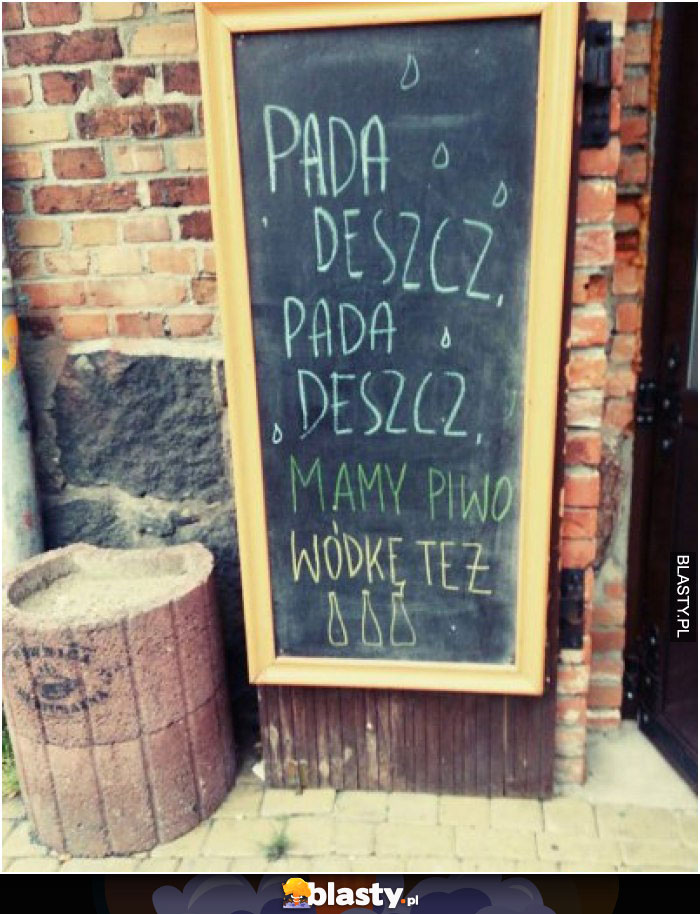 PADA
DESZCZ,
PADA
DESZCZ,
MAMY PIWO
WÓDKĘ TEŻ
BLASTY.PL
blasty.pl